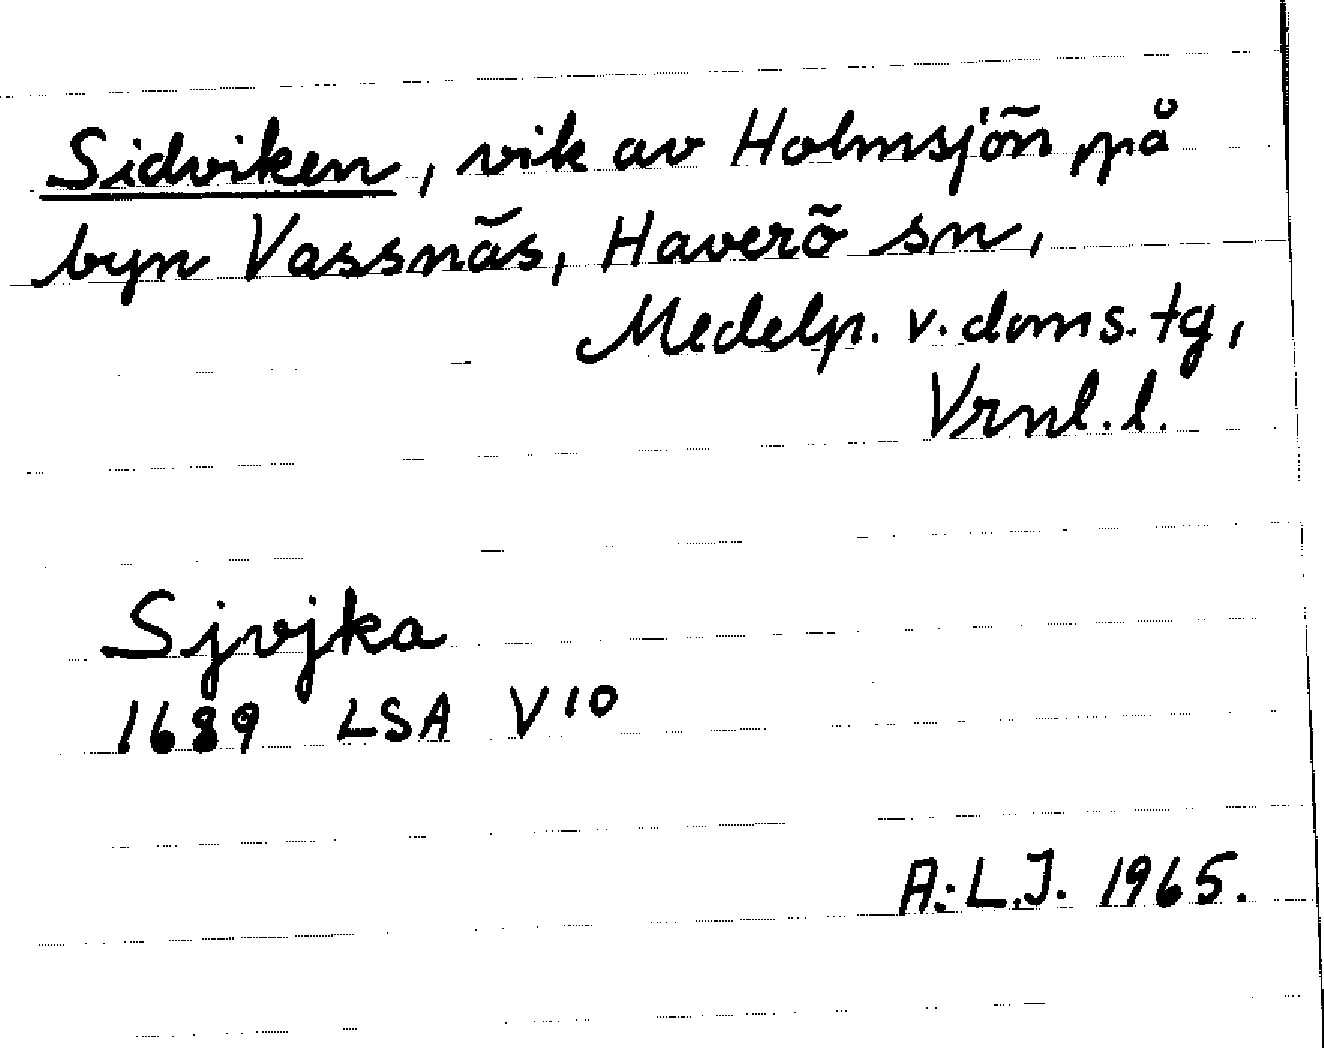 Sidviken, vik av Holmsjön, på
byn Vassnäs, Haverö sn,
Medelp. v. doms. tg,
Vrnl. l.
Sjvjka
1689 LSA V 10
A.L.J. 1965.